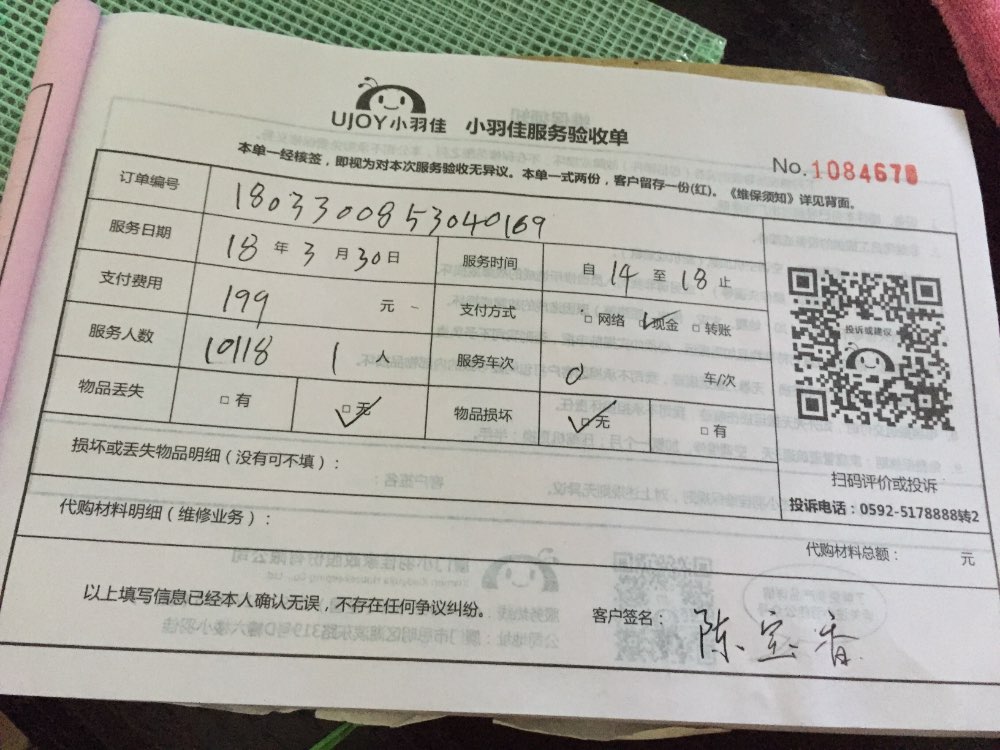 UJOY小羽佳 小羽佳服务验收单
No. 1084678
本单一经核签，即视为对本次服务验收无异议。本单一式两份，客户留存一份(红)。《维保须知》详见背面。
订单编号 1803300853040169
服务日期 18 年 3 月 30 日 服务时间 自 14 至 18 止
支付费用 199 元 支付方式 □网络 ☑现金 □转账
服务人数 10118 1 人 服务车次 0 车/次
物品丢失 □有 ☑无 物品损坏 ☑无 □有
投诉或建议
扫码评价或投诉
投诉电话：0592-5178888转2
损坏或丢失物品明细（没有可不填）：
代购材料明细（维修业务）：
代购材料总额： 元
以上填写信息已经本人确认无误，不存在任何争议纠纷。
客户签名： 陈宝香